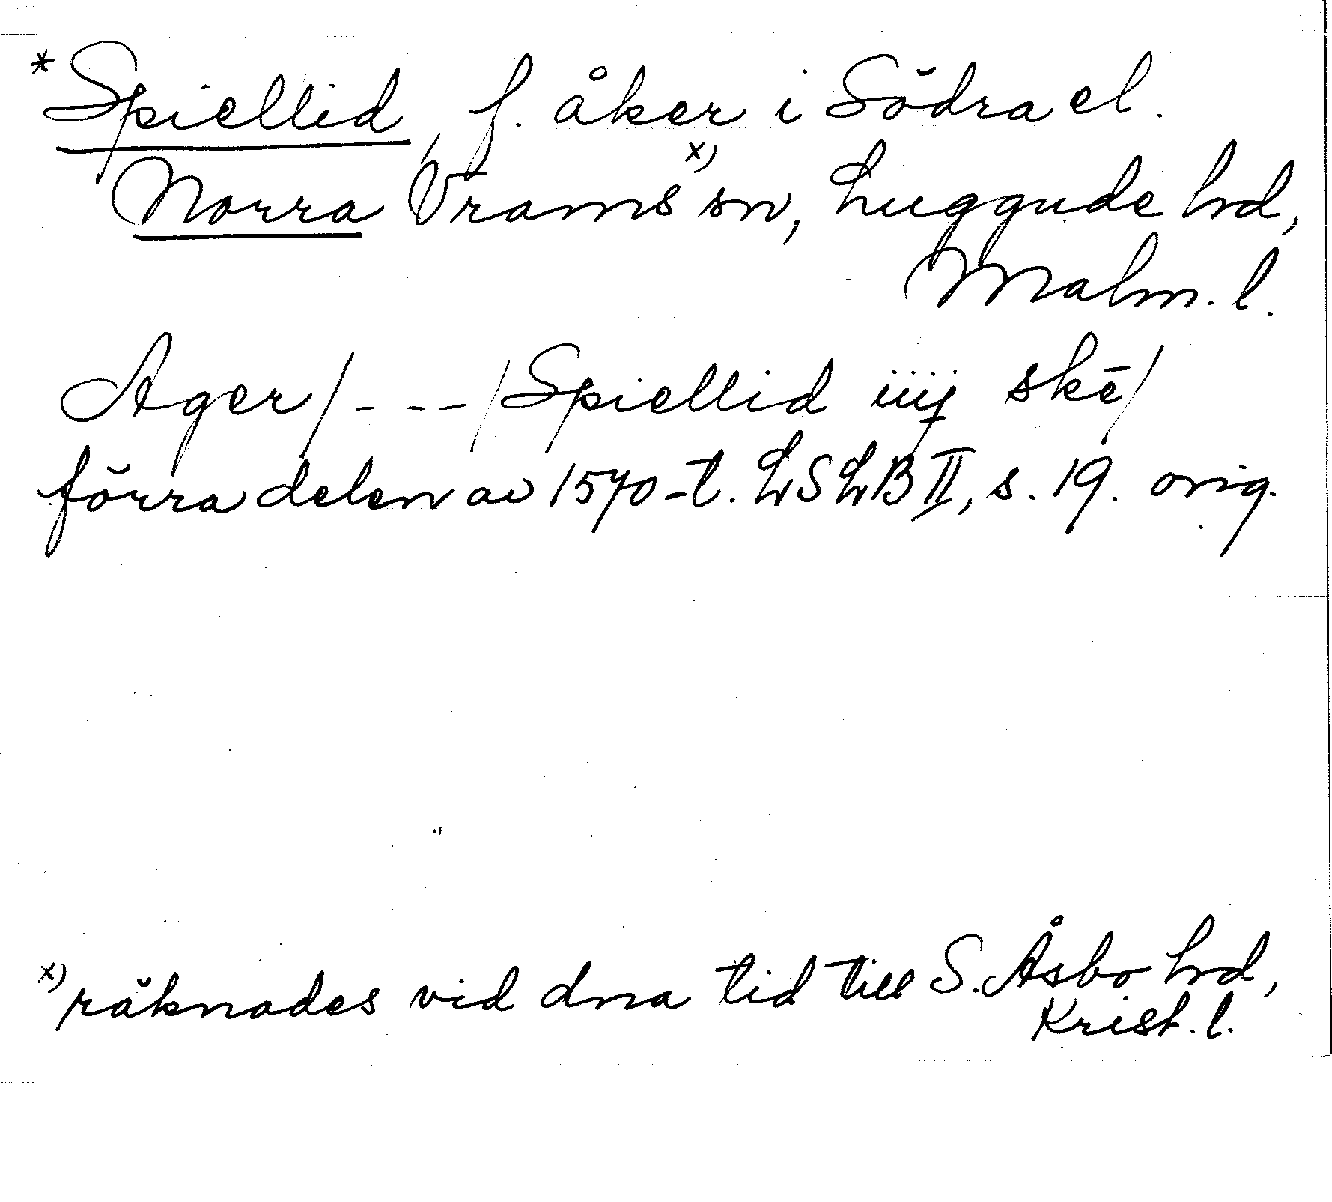 *Spiellid, f. åker i Södra el.
Norra Vrams x) sn, Luggude hd,
Malm. l.
Ager/ - - - /Spiellid iiij skē/
förra delen av 1570-t. LSLB II, s. 19. orig.
x) räknades vid dna tid till S. Åsbo hd,
Krist. l.